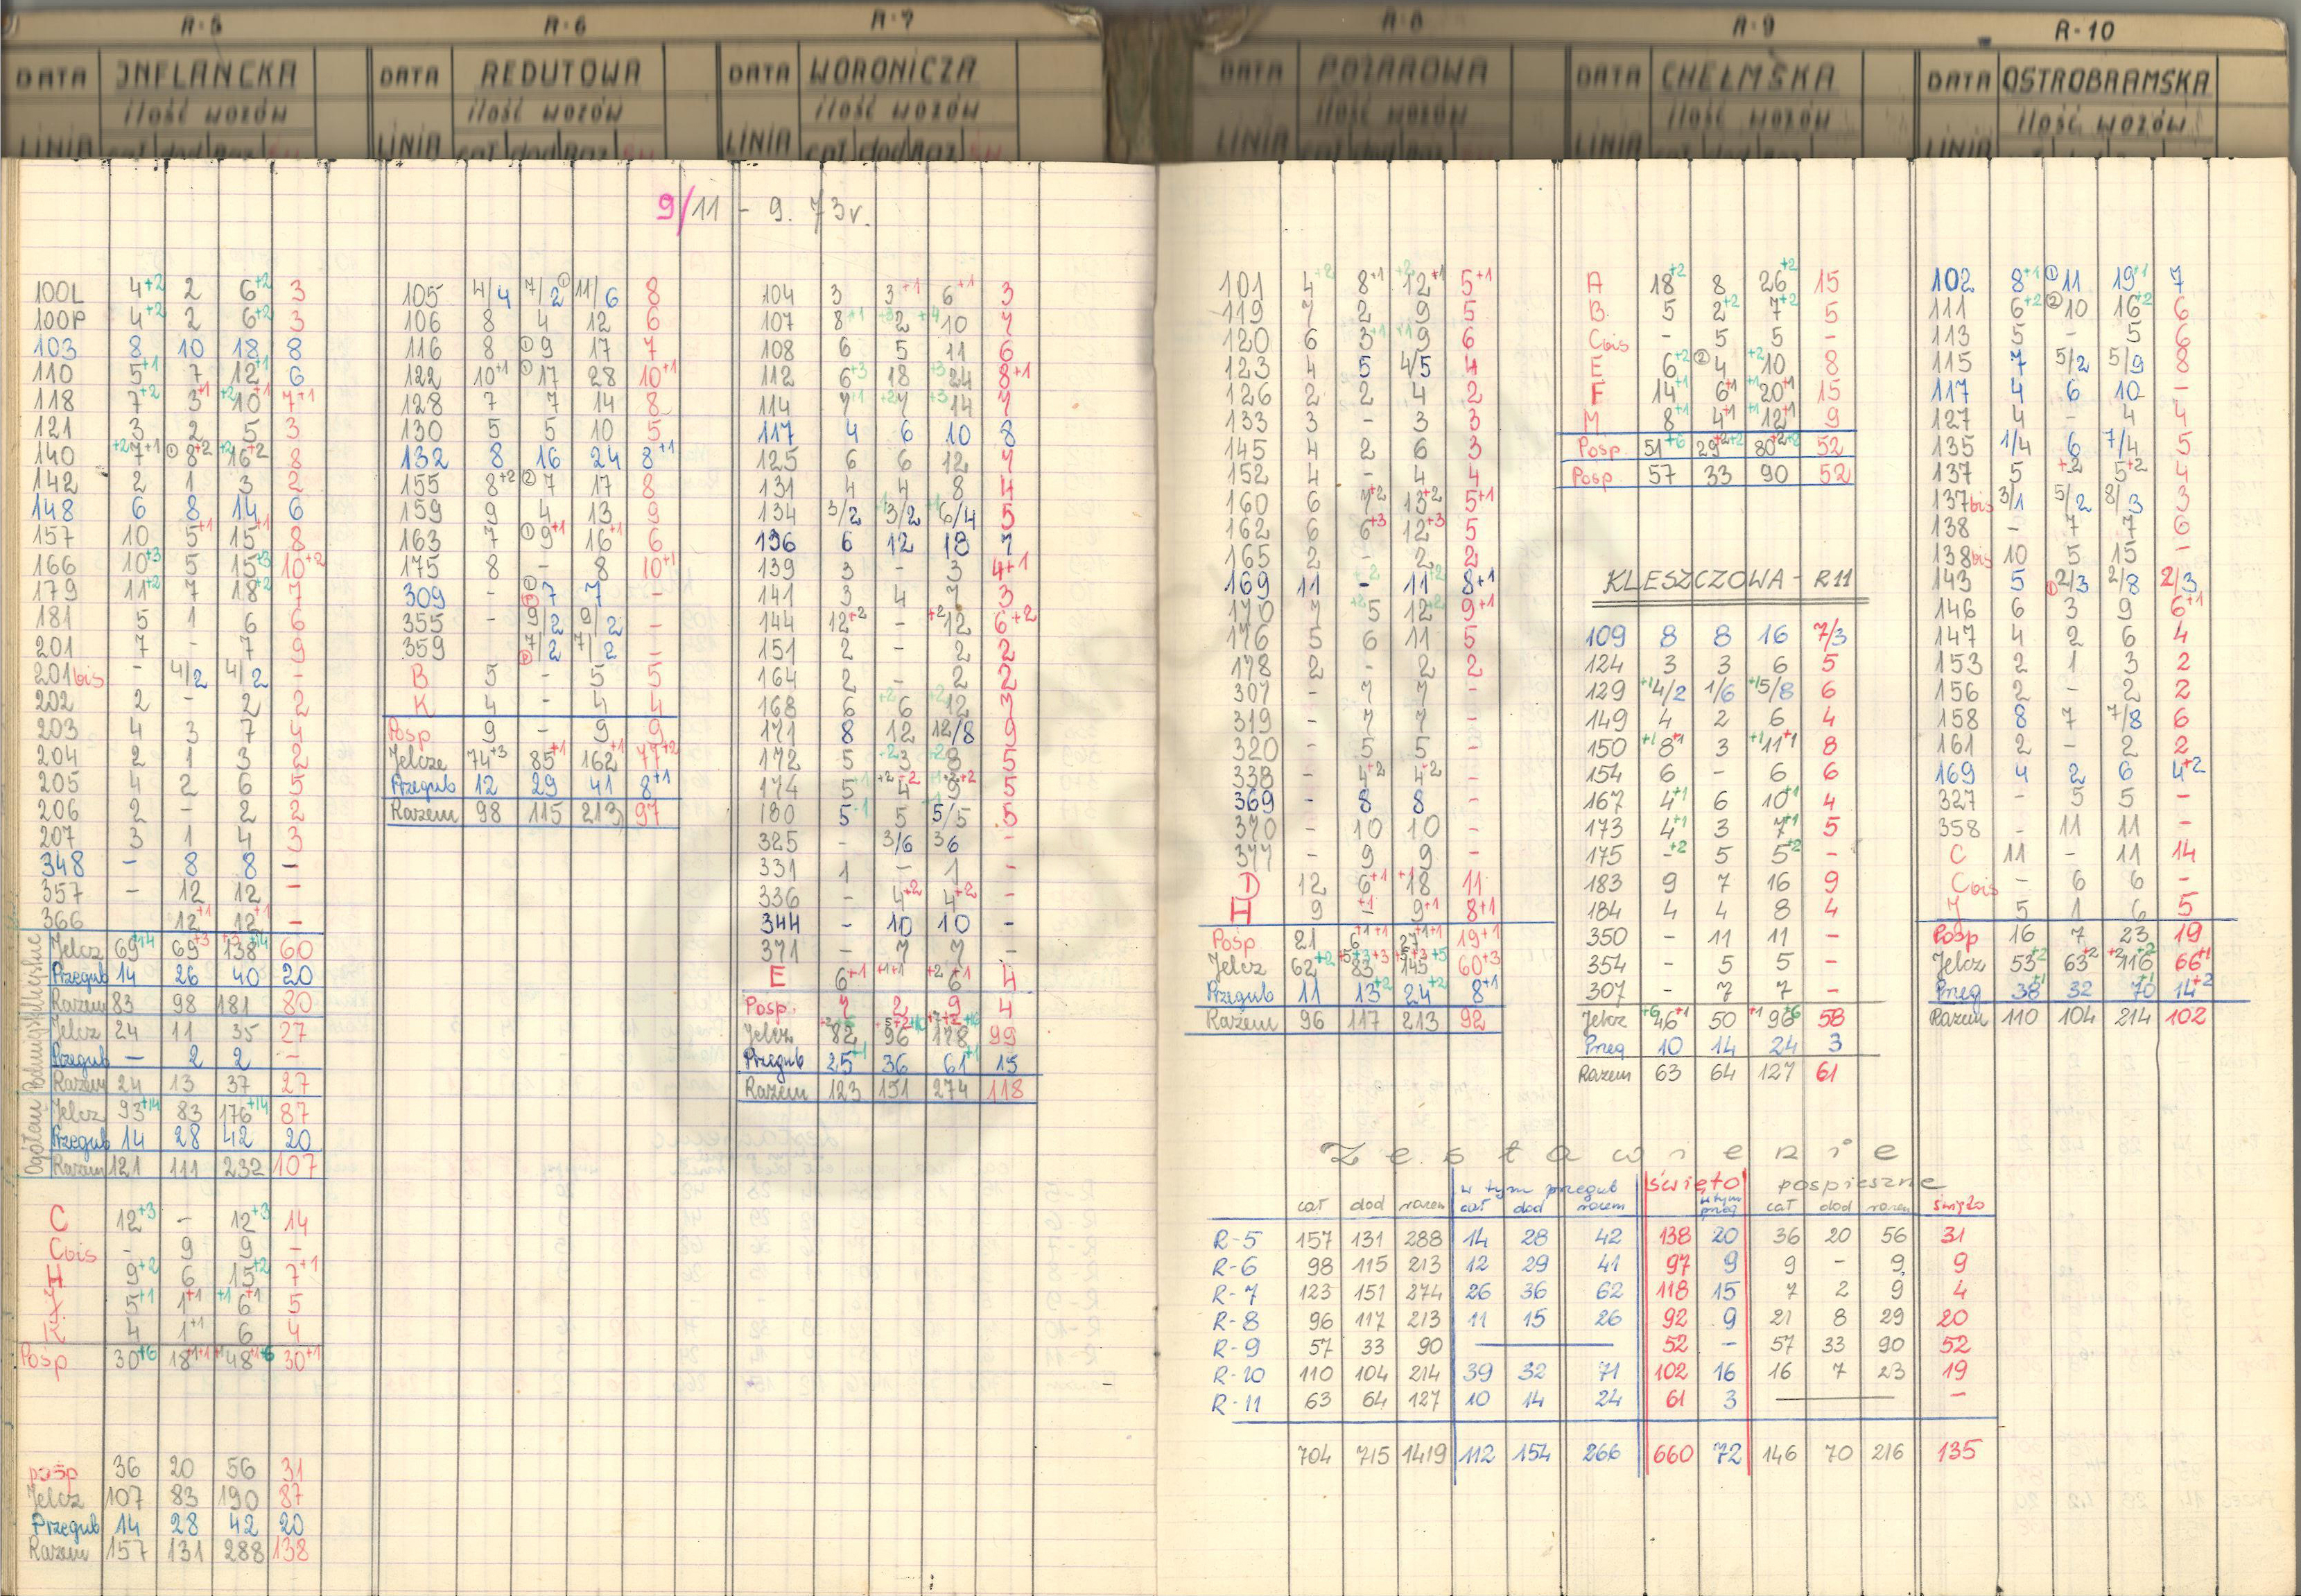 R-5
DATA INFLANCKA
ilość wozów
LINIA
100L 4+2 2 6+2 3
100P 4+2 2 6+2 3
103 8 10 18 8
110 5+1 7 12+1 6
118 7+2 3+1 +2 10+1 7+1
121 3 2 5 3
140 +2 7+1 ① 8+2 +2 16+2 8
142 2 1 3 2
148 6 8 14 6
157 10 5+1 15+1 8
166 10+3 5 15+3 10+2
179 11+2 7 18+2 7
181 5 1 6 6
201 7 - 7 9
201bis - 4/2 4/2 -
202 2 - 2 2
203 4 3 7 4
204 2 1 3 2
205 4 2 6 5
206 2 - 2 2
207 3 1 4 3
348 - 8 8 -
357 - 12 12 -
366 12+1 12+1 -
Ogółem Podmiejskie Miejskie
Jelcz 69+14 69+3 138+14 60
Przegub 14 26 40 20
Razem 83 98 181 80
Jelcz 24 11 35 27
Przegub - 2 2 -
Razem 24 13 37 27
Jelcz 93+14 83 176+14 87
Przegub 14 28 42 20
Razem 121 111 232 107
C 12+3 - 12+3 14
Cbis - 9 9 -
H 9+2 6 15+2 7+1
5+1 1+1 +1 6+1 5
K 4 1+1 6 4
Pośp 30+6 18+1+1 48+6 30+1
pośp 36 20 56 31
Jelcz 107 83 190 87
Przegub 14 28 42 20
Razem 157 131 288 138
R-6
DATA REDUTOWA
ilość wozów
LINIA
105 4/4 7/2 ① 11/6 8
106 8 4 12 6
116 8 ① 9 17 7
122 10+1 ① 17 28 10+1
128 7 7 14 8
130 5 5 10 5
132 8 16 24 8+1
155 8+2 ② 7 17 8
159 9 4 13 9
163 7 ① 9+1 16+1 6
175 8 - 8 10+1
309 - 7 7 -
355 - 9/2 9/2 -
359 7/2 7/2 -
B 5 - 5 5
K 4 - 4 4
Pośp 9 - 9 9
Jelcze 74+3 85+1 162+1 77+2
Przegub 12 29 41 8+1
Razem 98 115 213 97
R-7
DATA WORONICZA
ilość wozów
LINIA
9/11 - 9. 73r.
104 3 3+1 6+1 3
107 8+1 +3 2 +4 10 7
108 6 5 11 6
112 6+3 18 +3 24 8+1
114 7+1 +2 7 +3 14 7
117 4 6 10 8
125 6 6 12 7
131 4 4 8 4
134 3/2 3/2 6/4 5
136 6 12 18 7
139 3 - 3 4+1
141 3 4 7 3
144 12+2 - +2 12 6+2
151 2 - 2 2
164 2 - 2 2
168 6 +2 6 +2 12 3
171 8 12 12/8 9
172 5 +2 3 +2 8 5
174 5+1 +2 4+2 9+2 5
180 5+1 5 5/5 5
325 - 3/6 36 -
331 1 - 1 -
336 - 4+2 4+2 -
344 - 10 10 -
371 - 7 7 -
E 6+1 +1+1 +2 6+1 4
Pośp. 7 2 9 4
Jelcz 82 96 178 99
Przegub 25+1 36 61+1 15
Razem 123 151 274 118
R-8
DATA POŻAROWA
ilość wozów
LINIA
101 4+2 8+1 +2 12+1 5+1
119 7 2 9 5
120 6 3+1 +1 9 6
123 4 5 4/5 4
126 2 2 4 2
133 3 - 3 3
145 4 2 6 3
152 4 - 4 4
160 6 7+2 13+2 5+1
162 6 6+3 12+3 5
165 2 - 2 2
169 11 - 11+2 8+1
170 7 +2 5 12+2 9+1
176 5 6 11 5
178 2 - 2 2
307 - 7 7 -
319 - 7 7 -
320 - 5 5 -
338 - 4+2 4+2 -
369 - 8 8 -
370 - 10 10 -
377 - 9 9 -
D 12 6+1 +1 18 11
H 9 +1 - 9+1 8+1
Pośp 21 6+1+1 27+1+1 19+1
Jelcz 62+2 83 145 60+3
Przegub 11 13+2 24+2 8+1
Razem 96 117 213 92
R-9
DATA CHEŁMSKA
ilość wozów
LINIA
A 18+2 8 26+2 15
B 5 2+2 7+2 5
Cbis - 5 5 -
E 6+2 ② 4 +2 10 8
F 14+1 6+1 +1 20+1 15
M 8+1 4+1 +1 12+1 9
Pośp 51+6 29+2+2 80+2+2 52
Pośp 57 33 90 52
KLESZCZOWA - R11
109 8 8 16 7/3
124 3 3 6 5
129 +1 4/2 1/6 +1 5/8 6
149 4 2 6 4
150 +1 8+1 3 +1 11+1 8
154 6 - 6 6
167 4+1 6 10+1 4
173 4+1 3 7+1 5
175 -+2 5 5+2 -
183 9 7 16 9
184 4 4 8 4
350 - 11 11 -
354 - 5 5 -
307 - 7 7 -
Jelcz +6 46+1 50 +1 96+6 58
Przeg 10 14 24 3
Razem 63 64 127 61
R-10
DATA OSTROBRAMSKA
ilość wozów
LINIA
102 8+1 ① 11 19+1 7
111 6+2 ② 10 16+2 6
113 5 - 5 6
115 7 5/2 5/9 8
117 4 6 10 -
127 4 - 4 4
135 1/4 6 7/4 5
137 5 +2 5+2 4
137bis 3/1 5/2 8/3 3
138 - 7 7 6
138bis 10 5 15 -
143 5 ① 2/3 2/8 2/3
146 6 3 9 6+1
147 4 2 6 4
153 2 1 3 2
156 2 - 2 2
158 8 7 7/8 6
161 2 - 2 2
169 4 2 6 4+2
327 - 5 5 -
358 - 11 11 -
C 11 - 11 14
Cbis - 6 6 -
J 5 1 6 5
Pośp 16 7 23 19
Jelcz 53+2 63+2 +2 116+2 66+1
Przeg 38+1 32 70+1 14+2
Razem 110 104 214 102
Zestawienie
w tym przegub święto pospieszne
cał dod razem cał dod razem w tym przeg cał dod razem święto
R-5 157 131 288 14 28 42 138 20 36 20 56 31
R-6 98 115 213 12 29 41 97 9 9 - 9 9
R-7 123 151 274 26 36 62 118 15 7 2 9 4
R-8 96 117 213 11 15 26 92 9 21 8 29 20
R-9 57 33 90 — 52 - 57 33 90 52
R-10 110 104 214 39 32 71 102 16 16 7 23 19
R-11 63 64 127 10 14 24 61 3 — -
704 715 1419 112 154 266 660 72 146 70 216 135